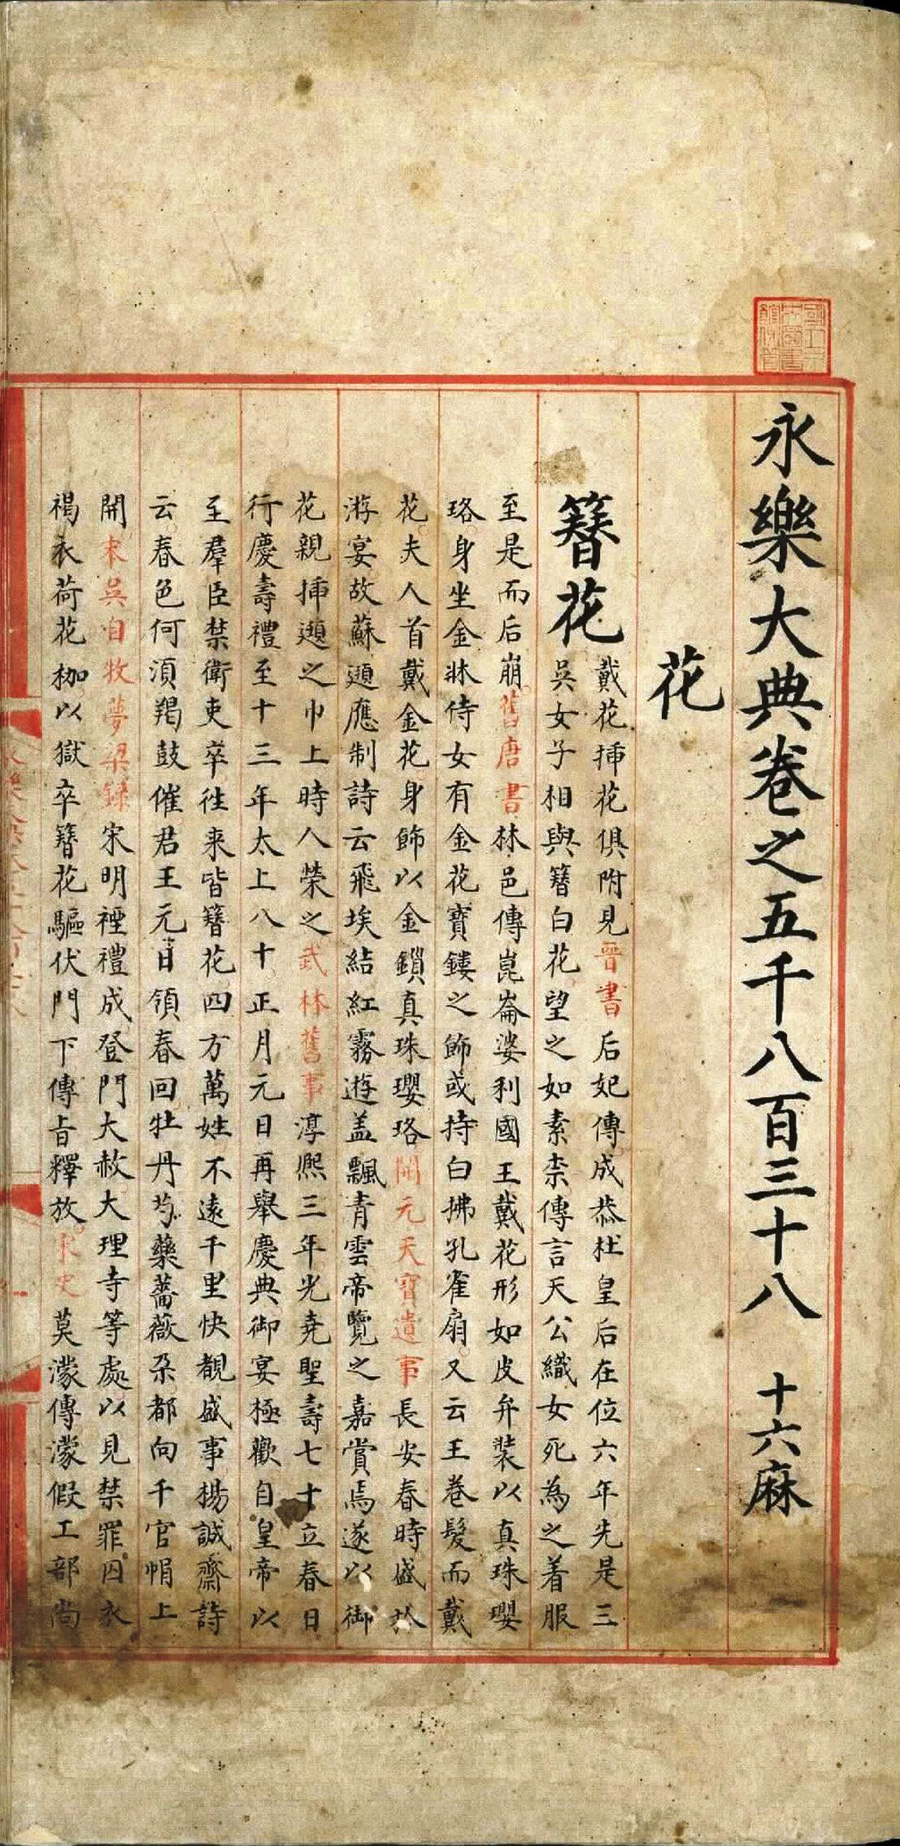 永樂大典卷之五千八百三十八　十六麻
花
簪花
戴花揷花俱附見晉書后妃傳成恭杜皇后在位六年先是三
吳女子相與簪白花望之如素柰傳言天公織女死為之着服
至是而后崩舊唐書林邑傳崑崙婆利國王戴花形如皮弁裝以真珠瓔
珞身坐金牀侍女有金花寶鏤之飾或持白拂孔雀扇又云王卷髮而戴
花夫人首戴金花身飾以金鎖真珠瓔珞開元天寶遺事長安春時盛於
游宴故蘇頲應制詩云飛埃結紅霧遊盖飄青雲帝覽之嘉賞焉遂以御
花親揷頲之巾上時人榮之武林舊事淳熙三年光堯聖壽七十立春日
行慶壽禮至十三年太上八十正月元日再舉慶典御宴極歡自皇帝以
至羣臣禁衛吏卒徃来皆簪花四方萬姓不逺千里快覩盛事楊誠齋詩
云春色何湏羯鼓催君王元日領春回牡丹芍藥薔薇朶都向千官帽上
開宋吳自牧夢梁錄宋明禋禮成登門大赦大理寺等處以見禁罪囚衣
褐衣荷花枷以獄卒簪花驅伏門下傳旨釋放宋史莫濛傳濛假工部尚